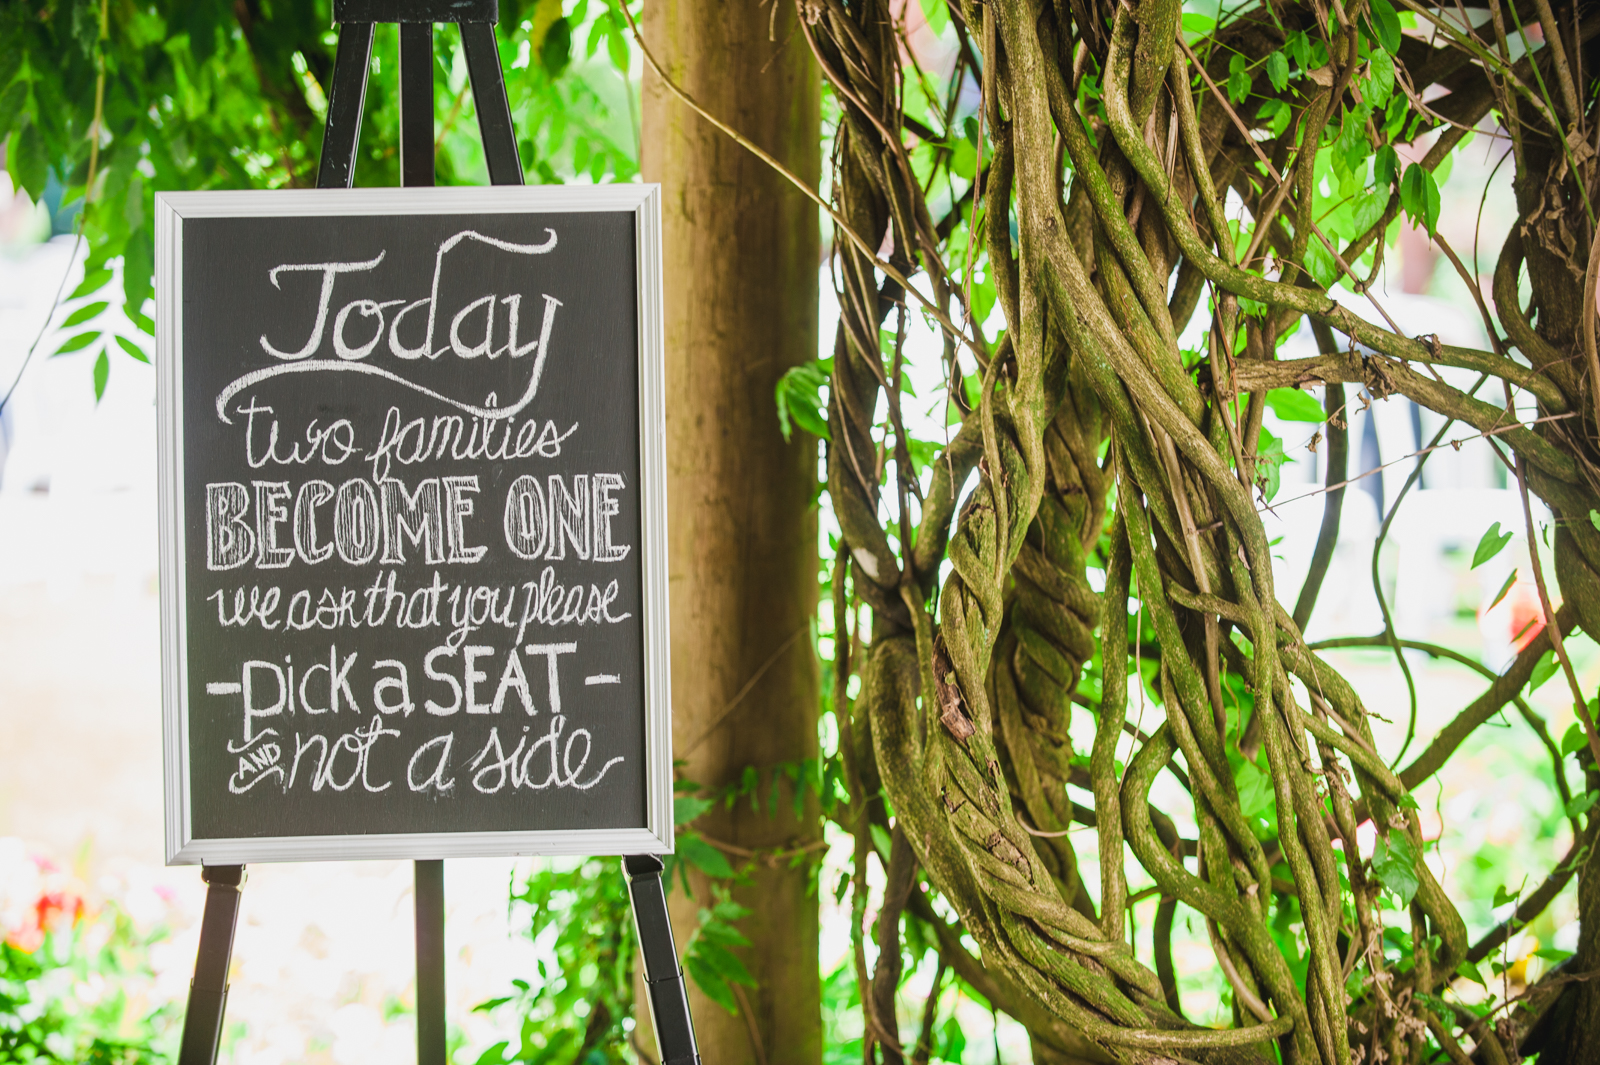 Today
two families
BECOME ONE
we ask that you please
-pick a SEAT-
AND not a side